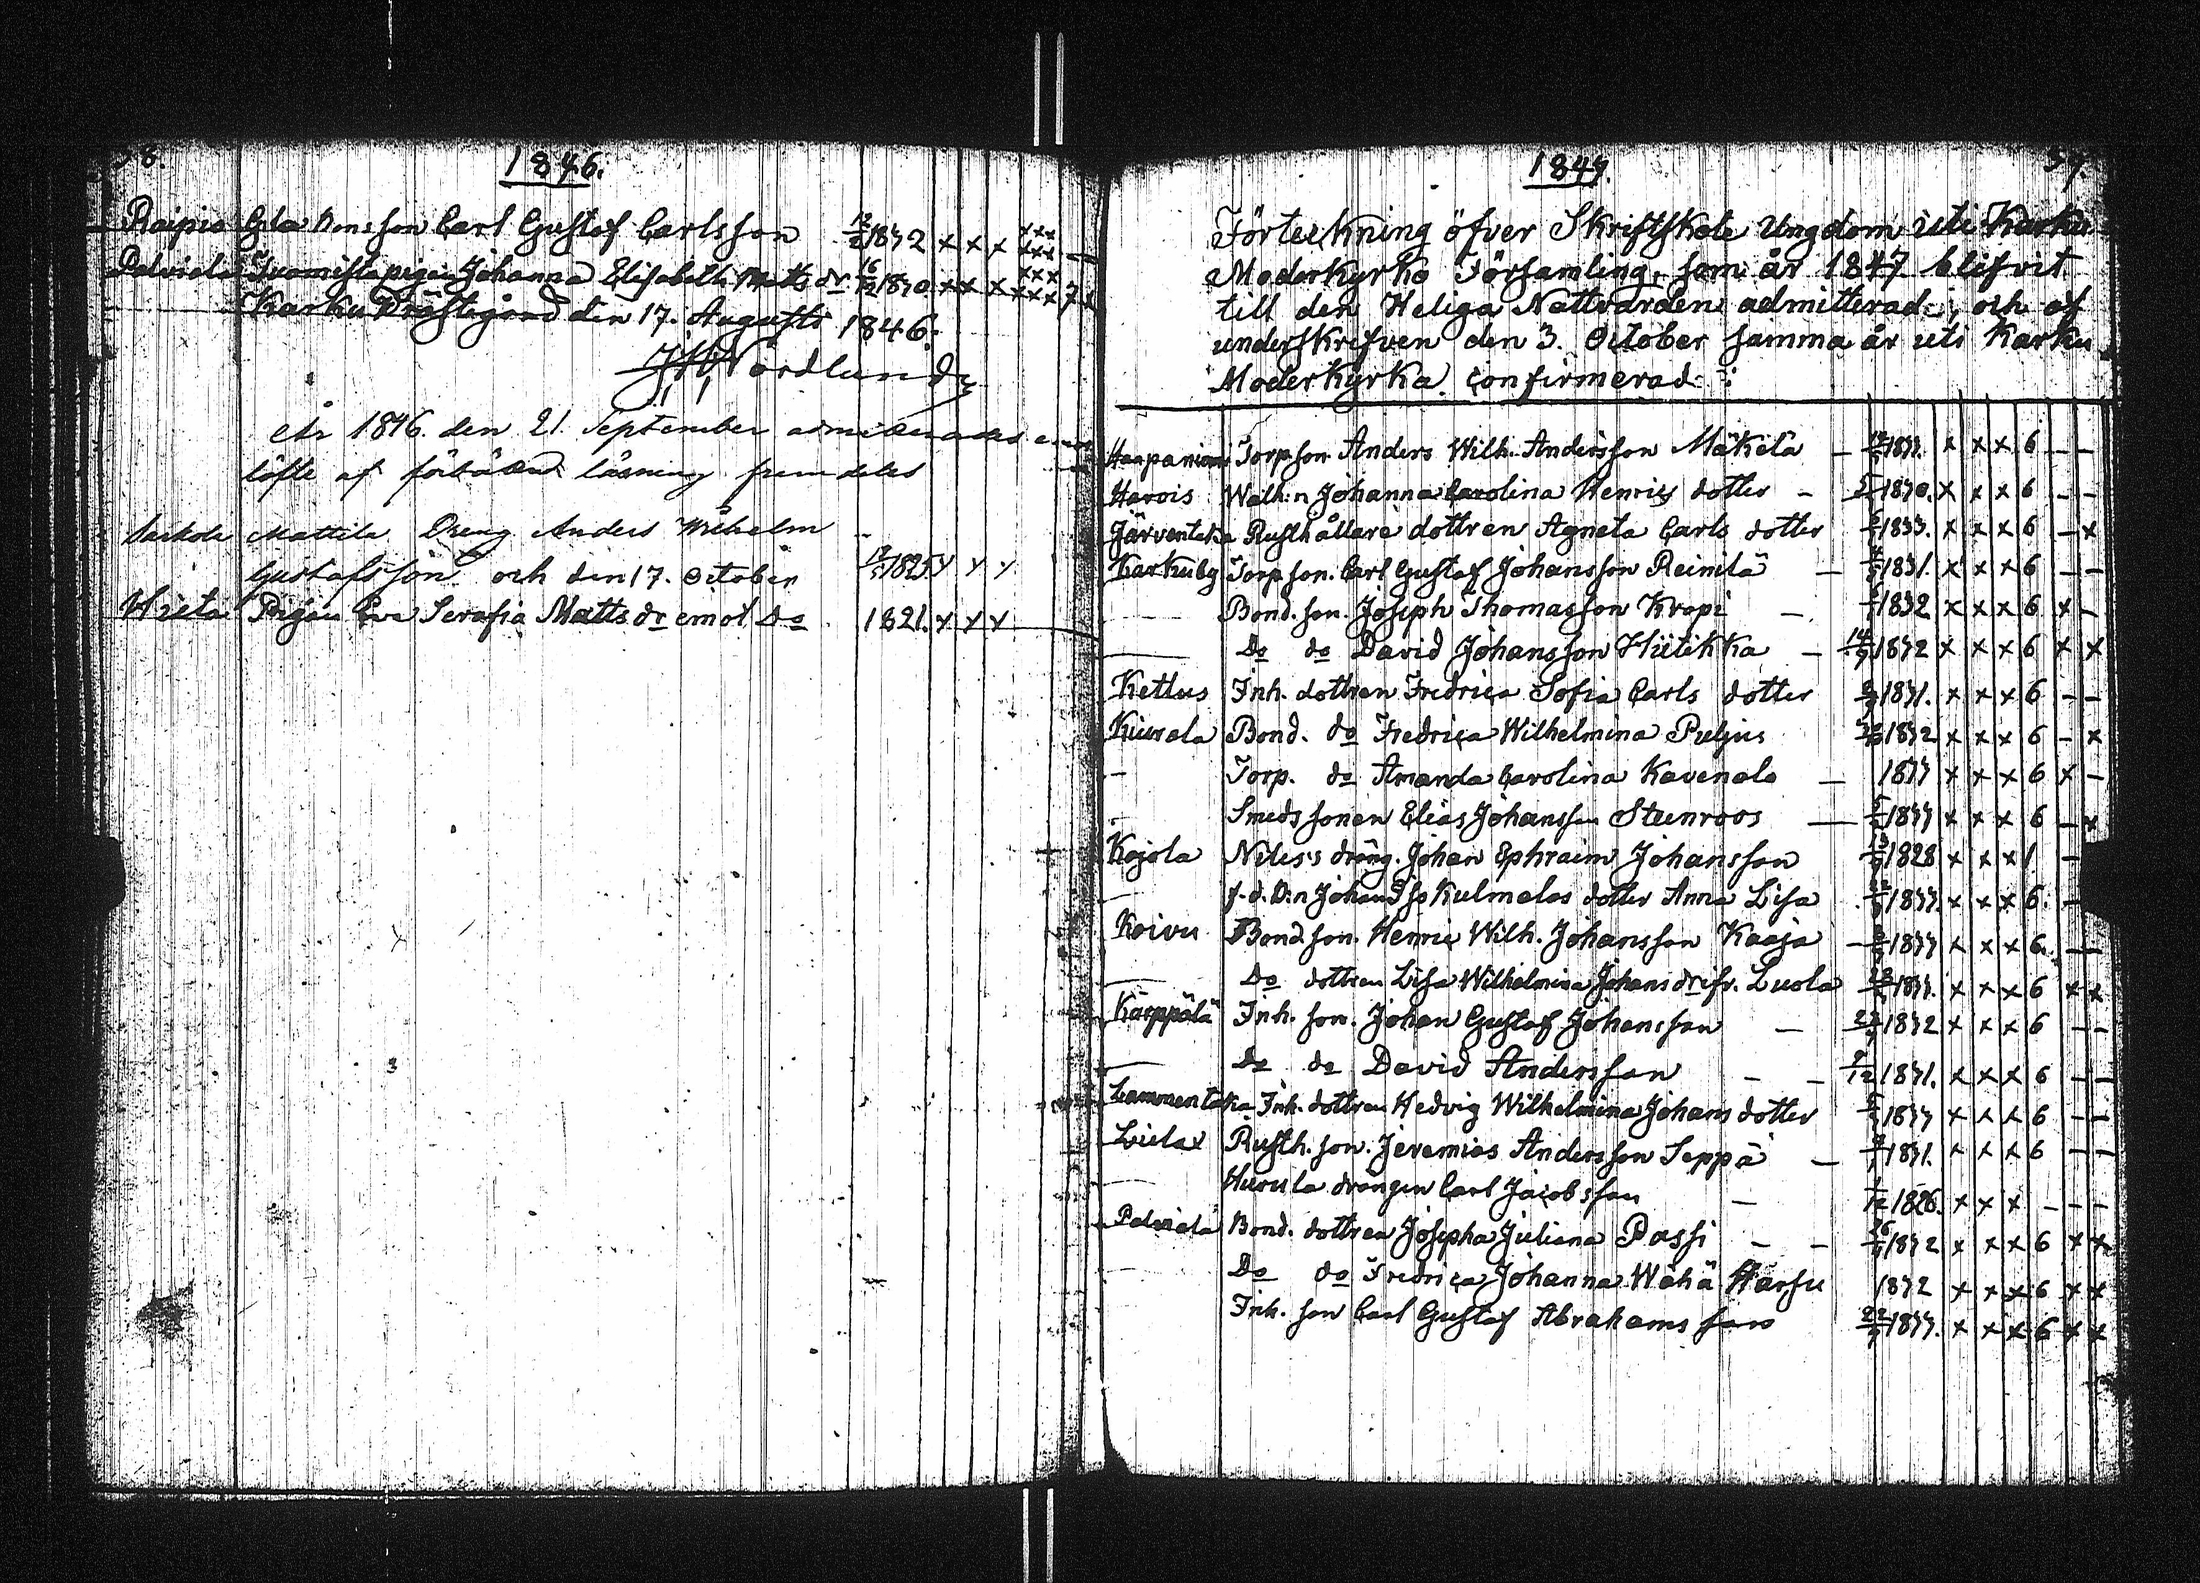 1846.
Raipio Carl Gustaf Carlsson 1832 x x x x x x x x x —
Palviala piga Johanna Elisabeth Matts dr 16/12 1830 x x x x x x x x x 7 x
Karku Prästegård den 17. Augusti 1846.
Nordlund
År 1846 den 21. September admitterades
löfte af läsning
Mattila Dreng Anders Wilhelm
Gustafsson och den 17. October 1825 x x x
Hieta Pigan Eva Serafia Matts dr emot Do 1821. x x x
1847.
Förteckning öfver Skriftskole Ungdom uti Karku
Moderkyrko Församling, som år 1847 blifvit
till den Heliga Nattvarden admitterad, och af
underskrifven den 3. October samma år uti Karku
Moderkyrka confirmerad:
Torp. son Anders Wilh. Andersson Mäkelä — x x x 6 — —
Harois Johanna Carolina Henrics dotter — 1830. x x x 6 — —
Järventaka Rusthållare dottren Agneta Carls dotter 1833. x x x 6 — x
Karkuby Torp. son. Carl Gustaf Johansson Reinilä — 1831. x x x 6 — —
Bond. son. Joseph Thomasson Kropi — 1832 x x x 6 x —
Do do David Johansson Hiitikka — 1832 x x x 6 x x
Kettus Inh. dottren Fredrica Sofia Carls dotter 1831. x x x 6 — —
Kiurala Bond. do Fredrica Wilhelmina Puljus 1832 x x x 6 — x
— Torp. do Amanda Carolina Kavenala — 1833 x x x 6 x —
Smeds sonen Elias Johansson Steenroos — 1833 x x x 6 — x
Kojola dräng. Johan Ephraim Johansson 13 1828 x x x 1 —
— Kulmalas dotter Anna Lisa 1833. x x x 6. —
Koivu Bond. son. Henric Wilh. Johansson Kaaja — 1833 x x x 6. —
— Do dottren Lisa Wilhelmina Johans dr ifr. Luola 1833. x x x 6 x x
Karppälä Inh. son. Johan Gustaf Johansson — 1832 x x x 6 — —
— Do do David Andersson — — 1831. x x x 6 — —
Lammentaka Inh. dottren Hedvig Wilhelmina Johans dotter 1833 x x x 6 — —
Lielax Rusth. son. Jeremias Andersson Seppä — 1831. x x x 6 — —
Hurula drängen Carl Jacobsson — 1/12 1826. x x x — — —
Palviala Bond. dottren Josepha Juliana Passi — — 1832 x x x 6 x x
Do do Fredrica Johanna Wähä Harsu 1832 x x x 6 x x
Inh. son Carl Gustaf Abrahamsson 1833. x x x 6 x x